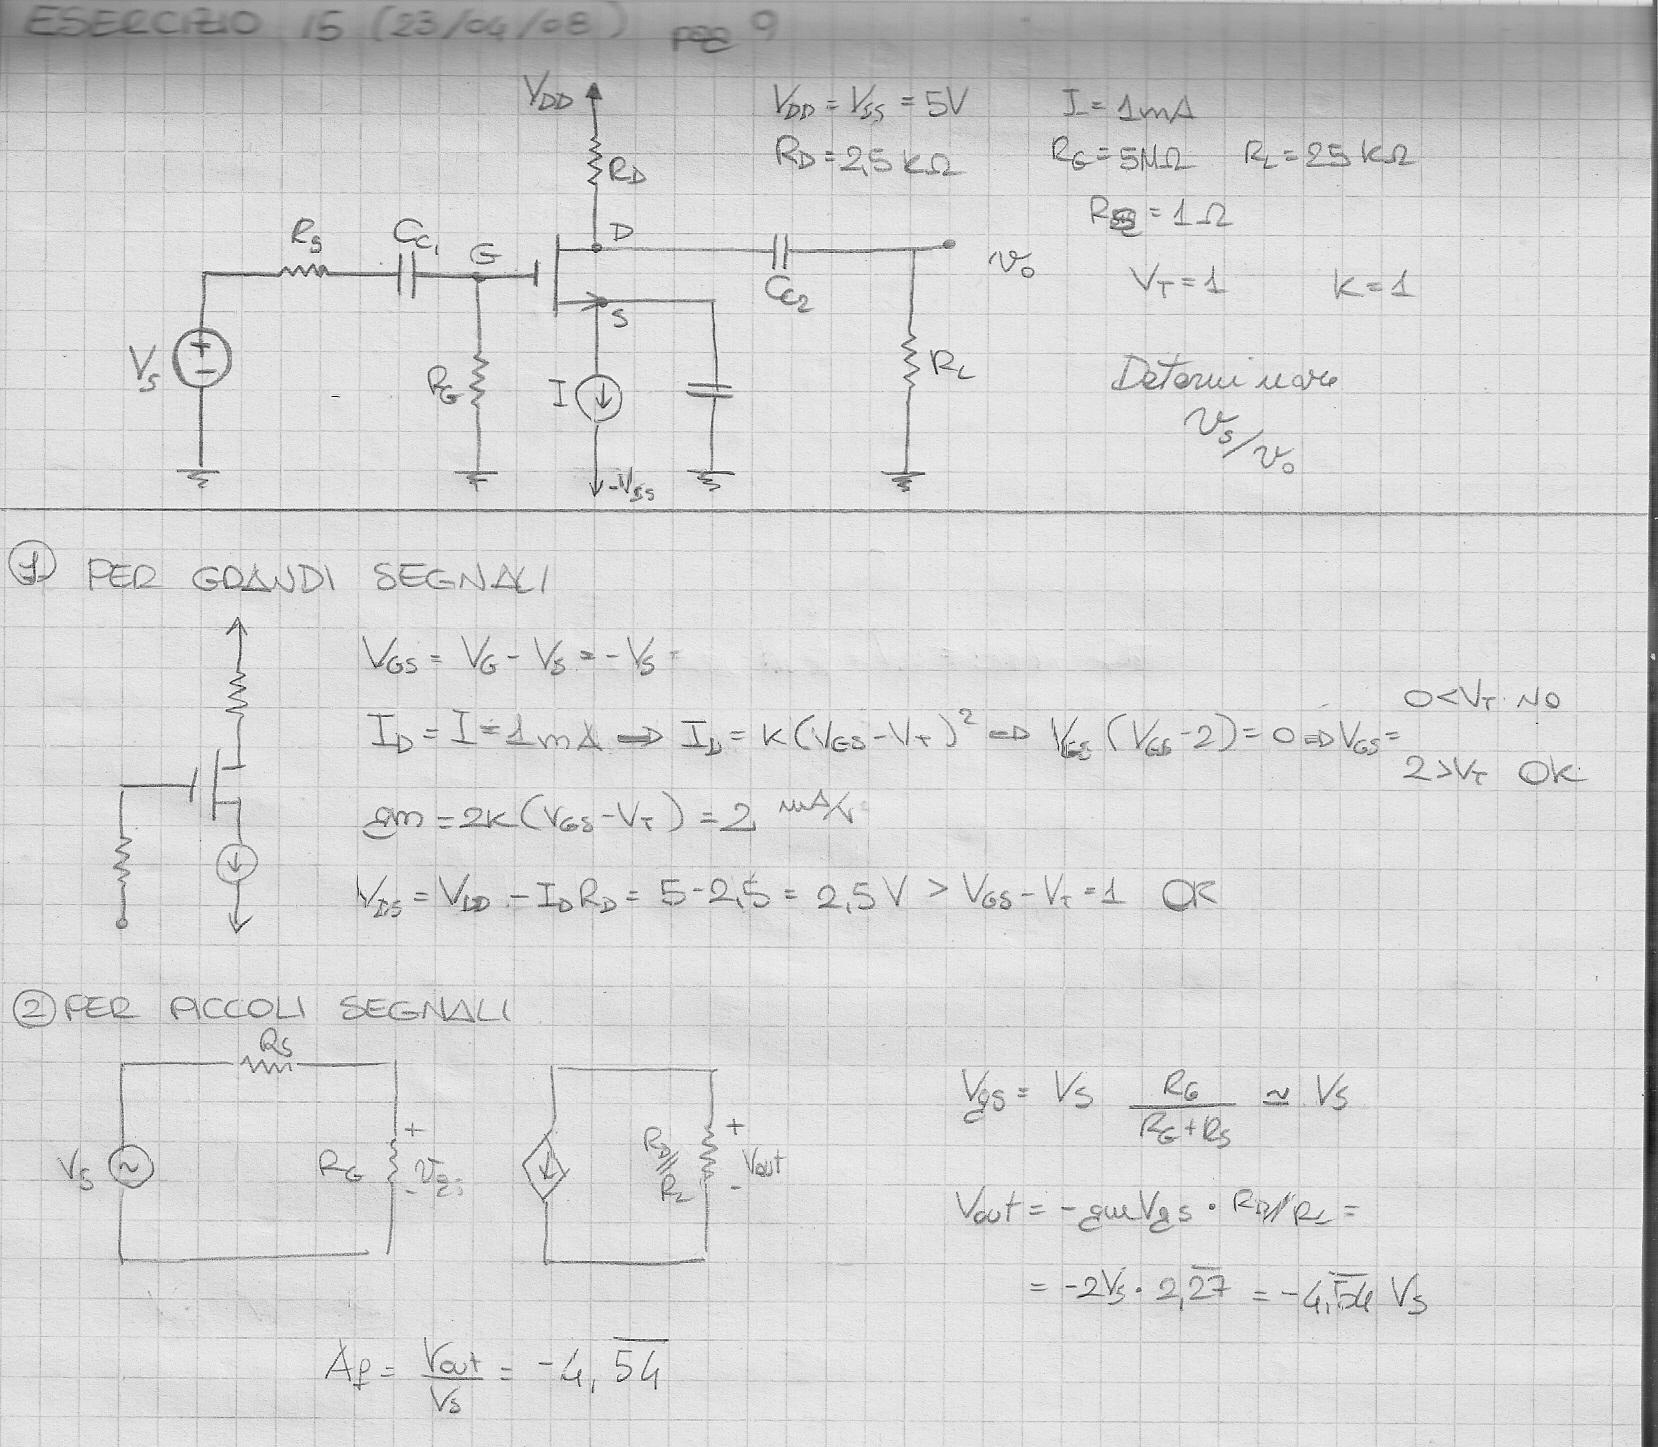 ESERCIZIO 15 (23/04/08) pag 9
VDD
VDD = VSS = 5V I = 1mA
RD = 2,5 kΩ RG = 5MΩ RL = 25 kΩ
RD
RS = 1Ω
RS CC1 G D
CC2 vo
VT = 1 K = 1
S
VS RG I RL
Determinare
vs/vo
-VSS
① PER GRANDI SEGNALI
VGS = VG - VS = -VS =
ID = I = 1mA ⇒ ID = K(VGS-VT)² ⇒ VGS(VGS-2) = 0 ⇒ VGS =
0<VT NO
2>VT OK
gm = 2K(VGS-VT) = 2 mA/V
VDS = VDD - IDRD = 5-2,5 = 2,5V > VGS-VT = 1 OK
② PER PICCOLI SEGNALI
RS
VS RG + vgs -
RD//RL + Vout -
Vgs = VS RG/(RG+RS) ≃ VS
Vout = -gmVgs · RD//RL =
= -2VS · 2,2̅7̅ = -4,5̅4̅ VS
Af = Vout/VS = -4,5̅4̅